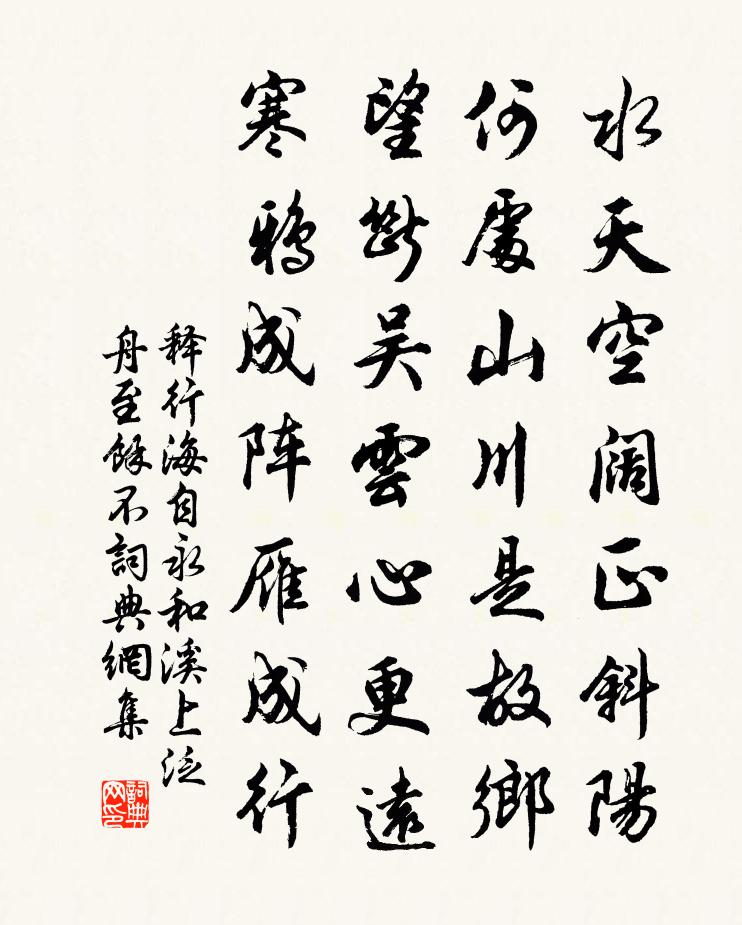 水天空阔正斜陽
何處山川是故鄉
望斷吴雲心更遠
寒鴉成阵雁成行
释行海自永和溪上泛
舟至餘不詞典網集
詞典网印